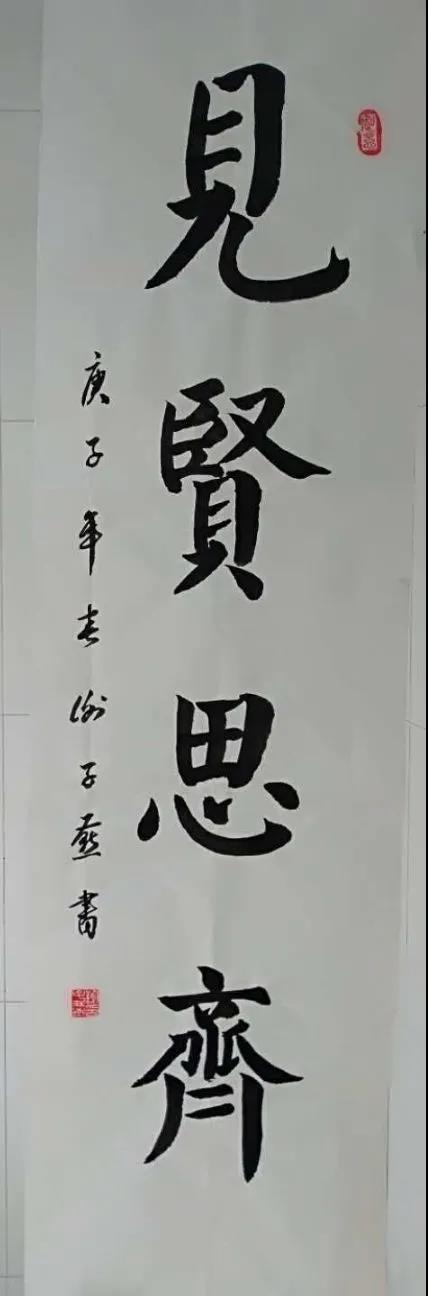 見賢思齊
庚子年春子燕書